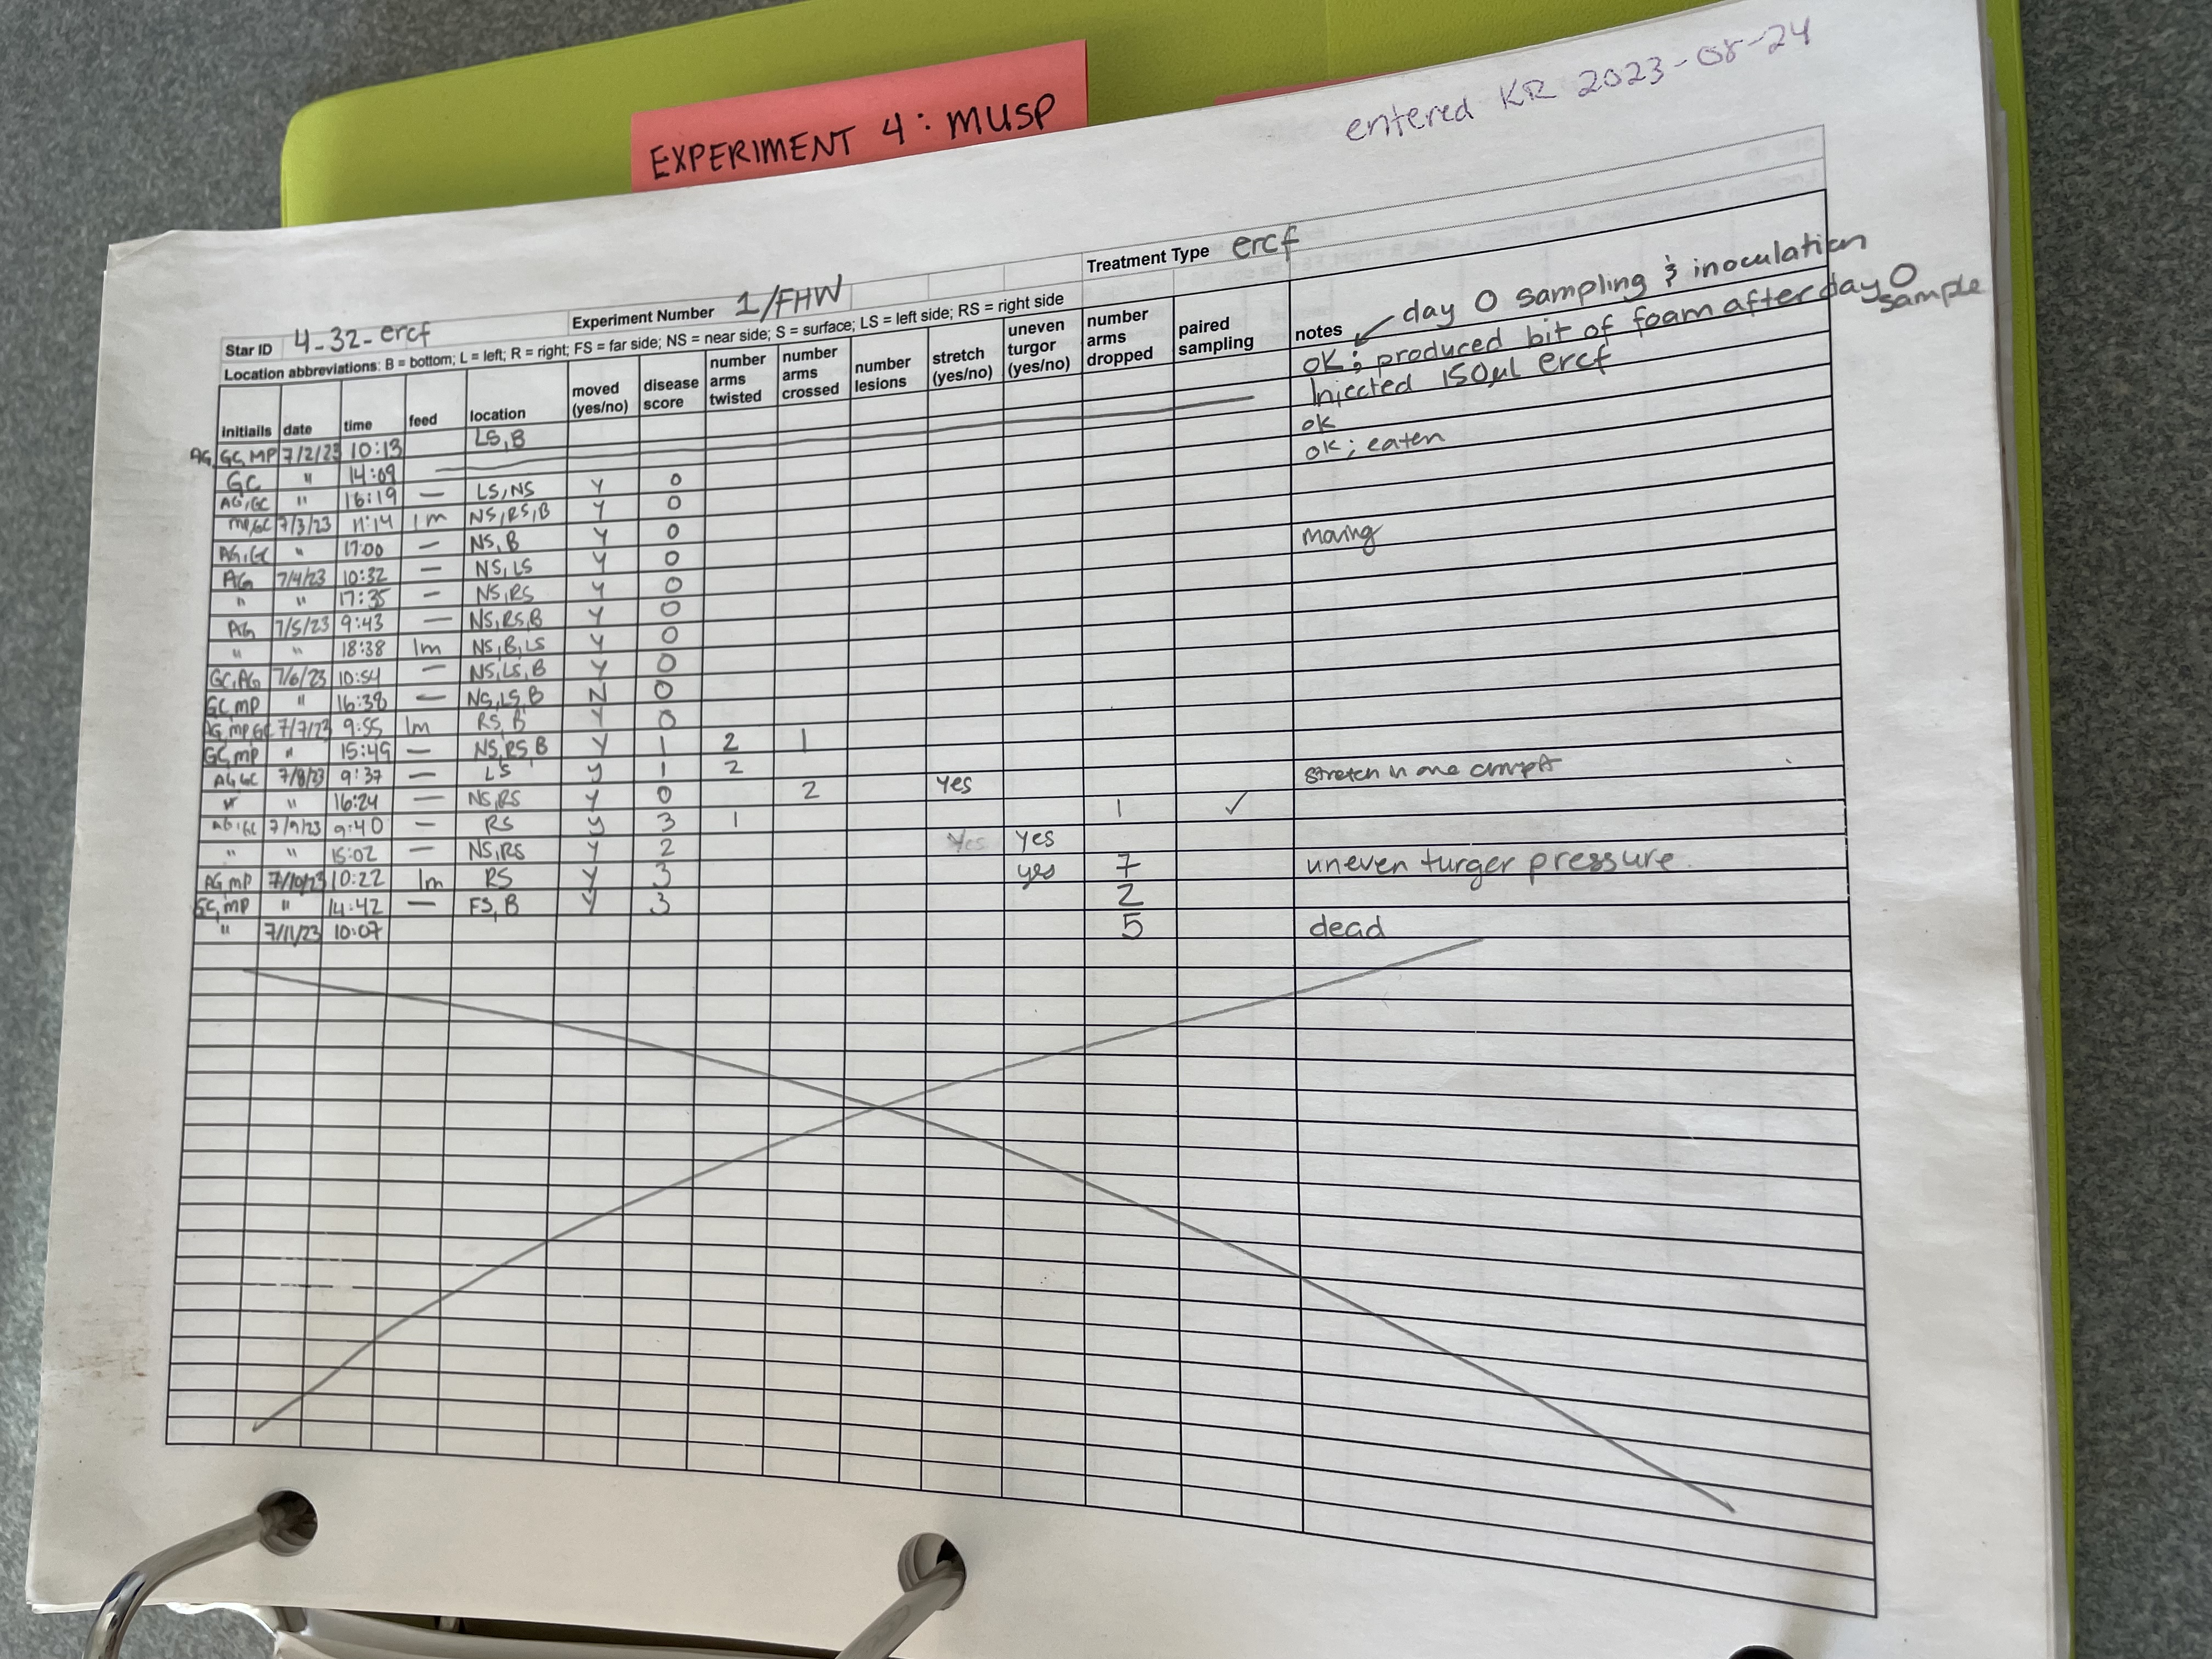 EXPERIMENT 4: MUSP
entered KR 2023-08-24
Star ID 4-32-ercf Experiment Number 1/FHW Treatment Type ercf
Location abbreviations: B = bottom; L = left; R = right; FS = far side; NS = near side; S = surface; LS = left side; RS = right side
day 0 sampling & inoculation
initiails date time feed location moved (yes/no) disease score number arms twisted number arms crossed number lesions stretch (yes/no) uneven turgor (yes/no) number arms dropped paired sampling notes
AG, GC, MP 7/2/23 10:13 LS, B OK; produced bit of foam after day 0 sample
GC " 14:09 Injected 150µl ercf
AG, GC " 16:19 — LS, NS Y 0 ok
MP, GC 7/3/23 11:14 1m NS, RS, B Y 0 ok; eaten
AG, GC " 17:00 — NS, B Y 0
AG 7/4/23 10:32 — NS, LS Y 0
" " 17:35 — NS, RS Y 0 moving
AG 7/5/23 9:43 — NS, RS, B Y 0
" " 18:38 1m NS, B, LS Y 0
GC, AG 7/6/23 10:54 — NS, LS, B Y 0
GC, MP " 16:38 — NS, LS, B N 0
AG, MP, GC 7/7/23 9:55 1m RS, B Y 0
GC, MP " 15:49 — NS, RS, B Y 1 2 1
AG, GC 7/8/23 9:37 — LS Y 1 2
" " 16:24 — NS, RS Y 0 2 yes stretch in one
AG, GC 7/9/23 9:40 — RS Y 3 1 1 ✓
" " 15:02 — NS, RS Y 2 Yes yes
AG, MP 7/10/23 10:22 1m RS Y 3 yes 7 uneven turger pressure.
GC, MP " 14:42 — FS, B Y 3 2
" 7/11/23 10:07 5 dead